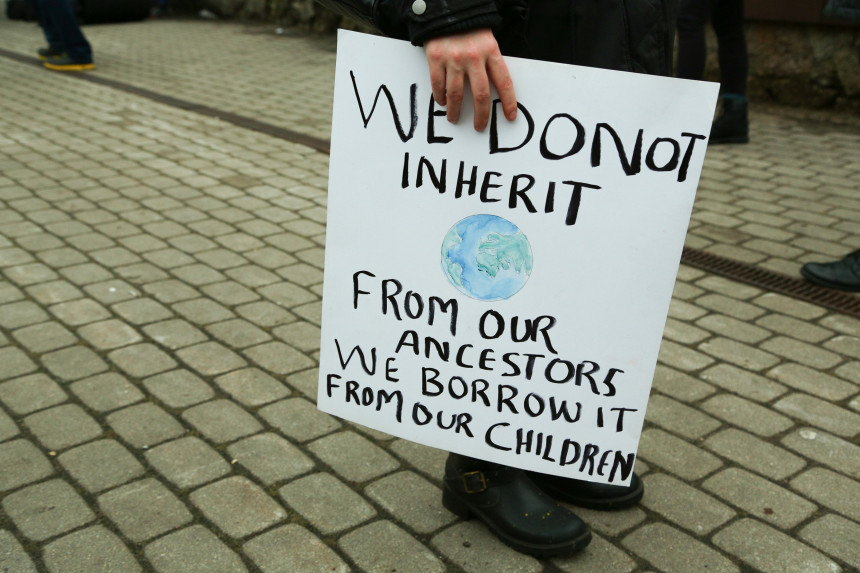 WE DO NOT
INHERIT
FROM OUR
ANCESTORS
WE BORROW IT
FROM OUR CHILDREN